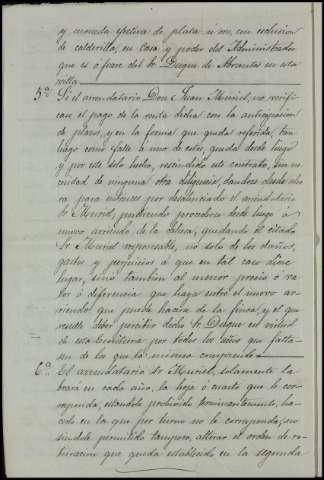 y moneda efectiva de plata ú oro, con exclusion
de calderilla, en casa y poder del Administrador
que es ó fuere del Sr Duque de Abrantes en esta
villa.
5ª Si el arrendatario Don Juan Muriel, no verifi-
case el pago de la renta dicha con la anticipacion
de plazo, y en la forma que queda referida, tan
luego como falte á uno de estos, queda desde luego
y por este solo hecho, rescindido este contrato, sin ne-
cesidad de ninguna otra diligencia, dandose desde aho-
ra para entonces por desahuciado el arrendatario
Sr Muriel, pudiendo procederse desde luego á
nuevo arriendo de la dehesa, quedando el citado
Sr Muriel responsable, no solo de los daños,
gastos y perjuicios á que en tal caso diese
lugar, sinó tambien al menor precio ó va-
lor ó diferencia que haya entre el nuevo ar-
riendo que pueda hacerse de la finca, y el que
resulte deber percibir dicho Sr Duque en virtud
de esta Escritura por todos los años que falta-
sen de los que la misma comprende.
6ª El arrendatario Sr Muriel, solamente la-
brará en cada año, la hoja ó cuarto que le cor-
responda, estandole prohibido terminantemente, ha-
cerlo en la que por turno no le corresponda, no
siendole permitido tampoco, alterar el orden de ro-
turacion que queda establecido en la segunda